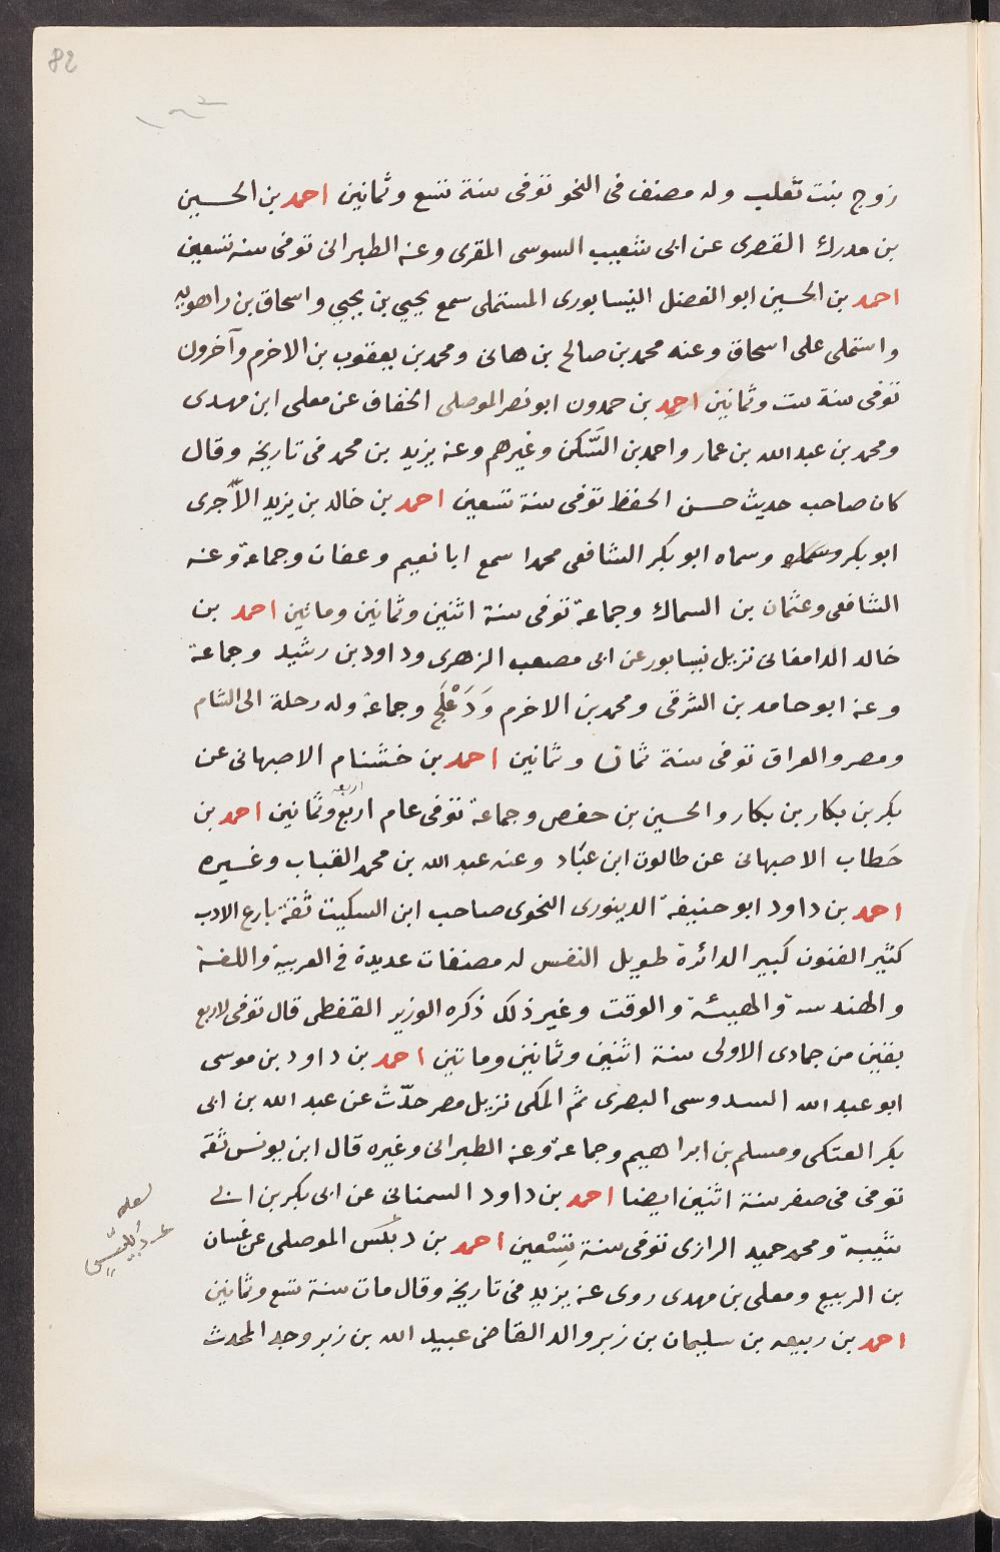 82
زوج بنت ثعلب وله مصنف فى النحو توفى سنة تسع وثمانين احمد بن الحسين
بن مدرك القصرى عن ابى شعيب السوسى المقرى وعنه الطبرانى توفى سنه تسعين
احمد بن الحسين ابو الفضل النيسابورى المستملى سمع يحيي بن يحيي واسحاق بن راهويه
واستملى على اسحاق وعنه محمد بن صالح بن هانى ومحمد بن يعقوب بن الاخرم وآخرون
توفى سنة ست وثمانين احمد بن حمدون ابو نصر الموصلى الخفاف عن معلى ابن مهدى
ومحمد بن عبد الله بن عمار واحمد بن السَّكن وغيرهم وعنه يزيد بن محمد فى تاريخه وقال
كان صاحب حديث حسن الحفظ توفى سنة تسعين احمد بن خالد بن يزيد الآجرى
ابو بكر وسماه وسماه ابو بكر الشافعى محمدا سمع ابا نعيم وعفان وجماعة وعنه
الشافعى وعثمان بن السماك وجماعة توفى سنة اثنين وثمانين وماتين احمد بن
خالد الدامغانى نزيل نيسابور عن ابى مصعب الزهرى وداود بن رشيد وجماعة
وعنه ابو حامد بن الشرقى ومحمد بن الاخرم وَدَعْلَج وجماعة وله رحلة الى الشام
ومصر والعراق توفى سنة ثمان وثمانين احمد بن خشنام الاصبهانى عن
بكر بن بكار بن بكار والحسين بن حفص وجماعة توفى عام اربع وثمانين احمد بن
اربعه
حَطاب الاصبهانى عن طالوت ابن عبّاد وعنه عبد الله بن محمد القباب وغيره
احمد بن داود ابو حنيفة الدينورى النحوى صاحب ابن السكيت ثقة بارع الادب
كثير الفنون كبير الدائرة طويل النفس له مصنفات عديدة فى العربية واللغة
والهندسة والهيئة والوقت وغير ذلك ذكره الوزير القفطى قال توفى لاربع
بقين من جمادى الاولى سنة اثنين وثمانين وماتين احمد بن داود بن موسى
ابو عبد الله السدوسى البصرى ثم المكى نزيل مصر حدّث عن عبد الله بن ابى
بكر العتكى ومسلم بن ابراهيم وجماعة وعنه الطبرانى وغيره قال ابن يونس ثقة
توفى فى صفر سنة اثنين ايضا احمد بن داود السمنانى عن ابى بكر بن ابى
شيبة ومحمد حميد الرازى توفى سنة تِسْعين احمد بن دبكس الموصلى عن غسان
لعله
بن الربيع ومعلى بن مهدى روى عنه يزيد فى تاريخه وقال مات سنة تسع وثمانين
احمد بن ربيعه بن سليمان بن زبر والد القاضى عبيد الله بن زبر وجد المحدث